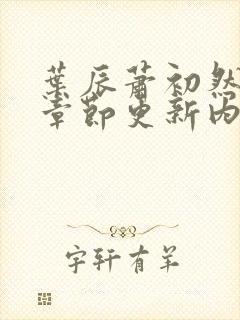 葉辰蕭初然
章節更新內
宇軒有羊